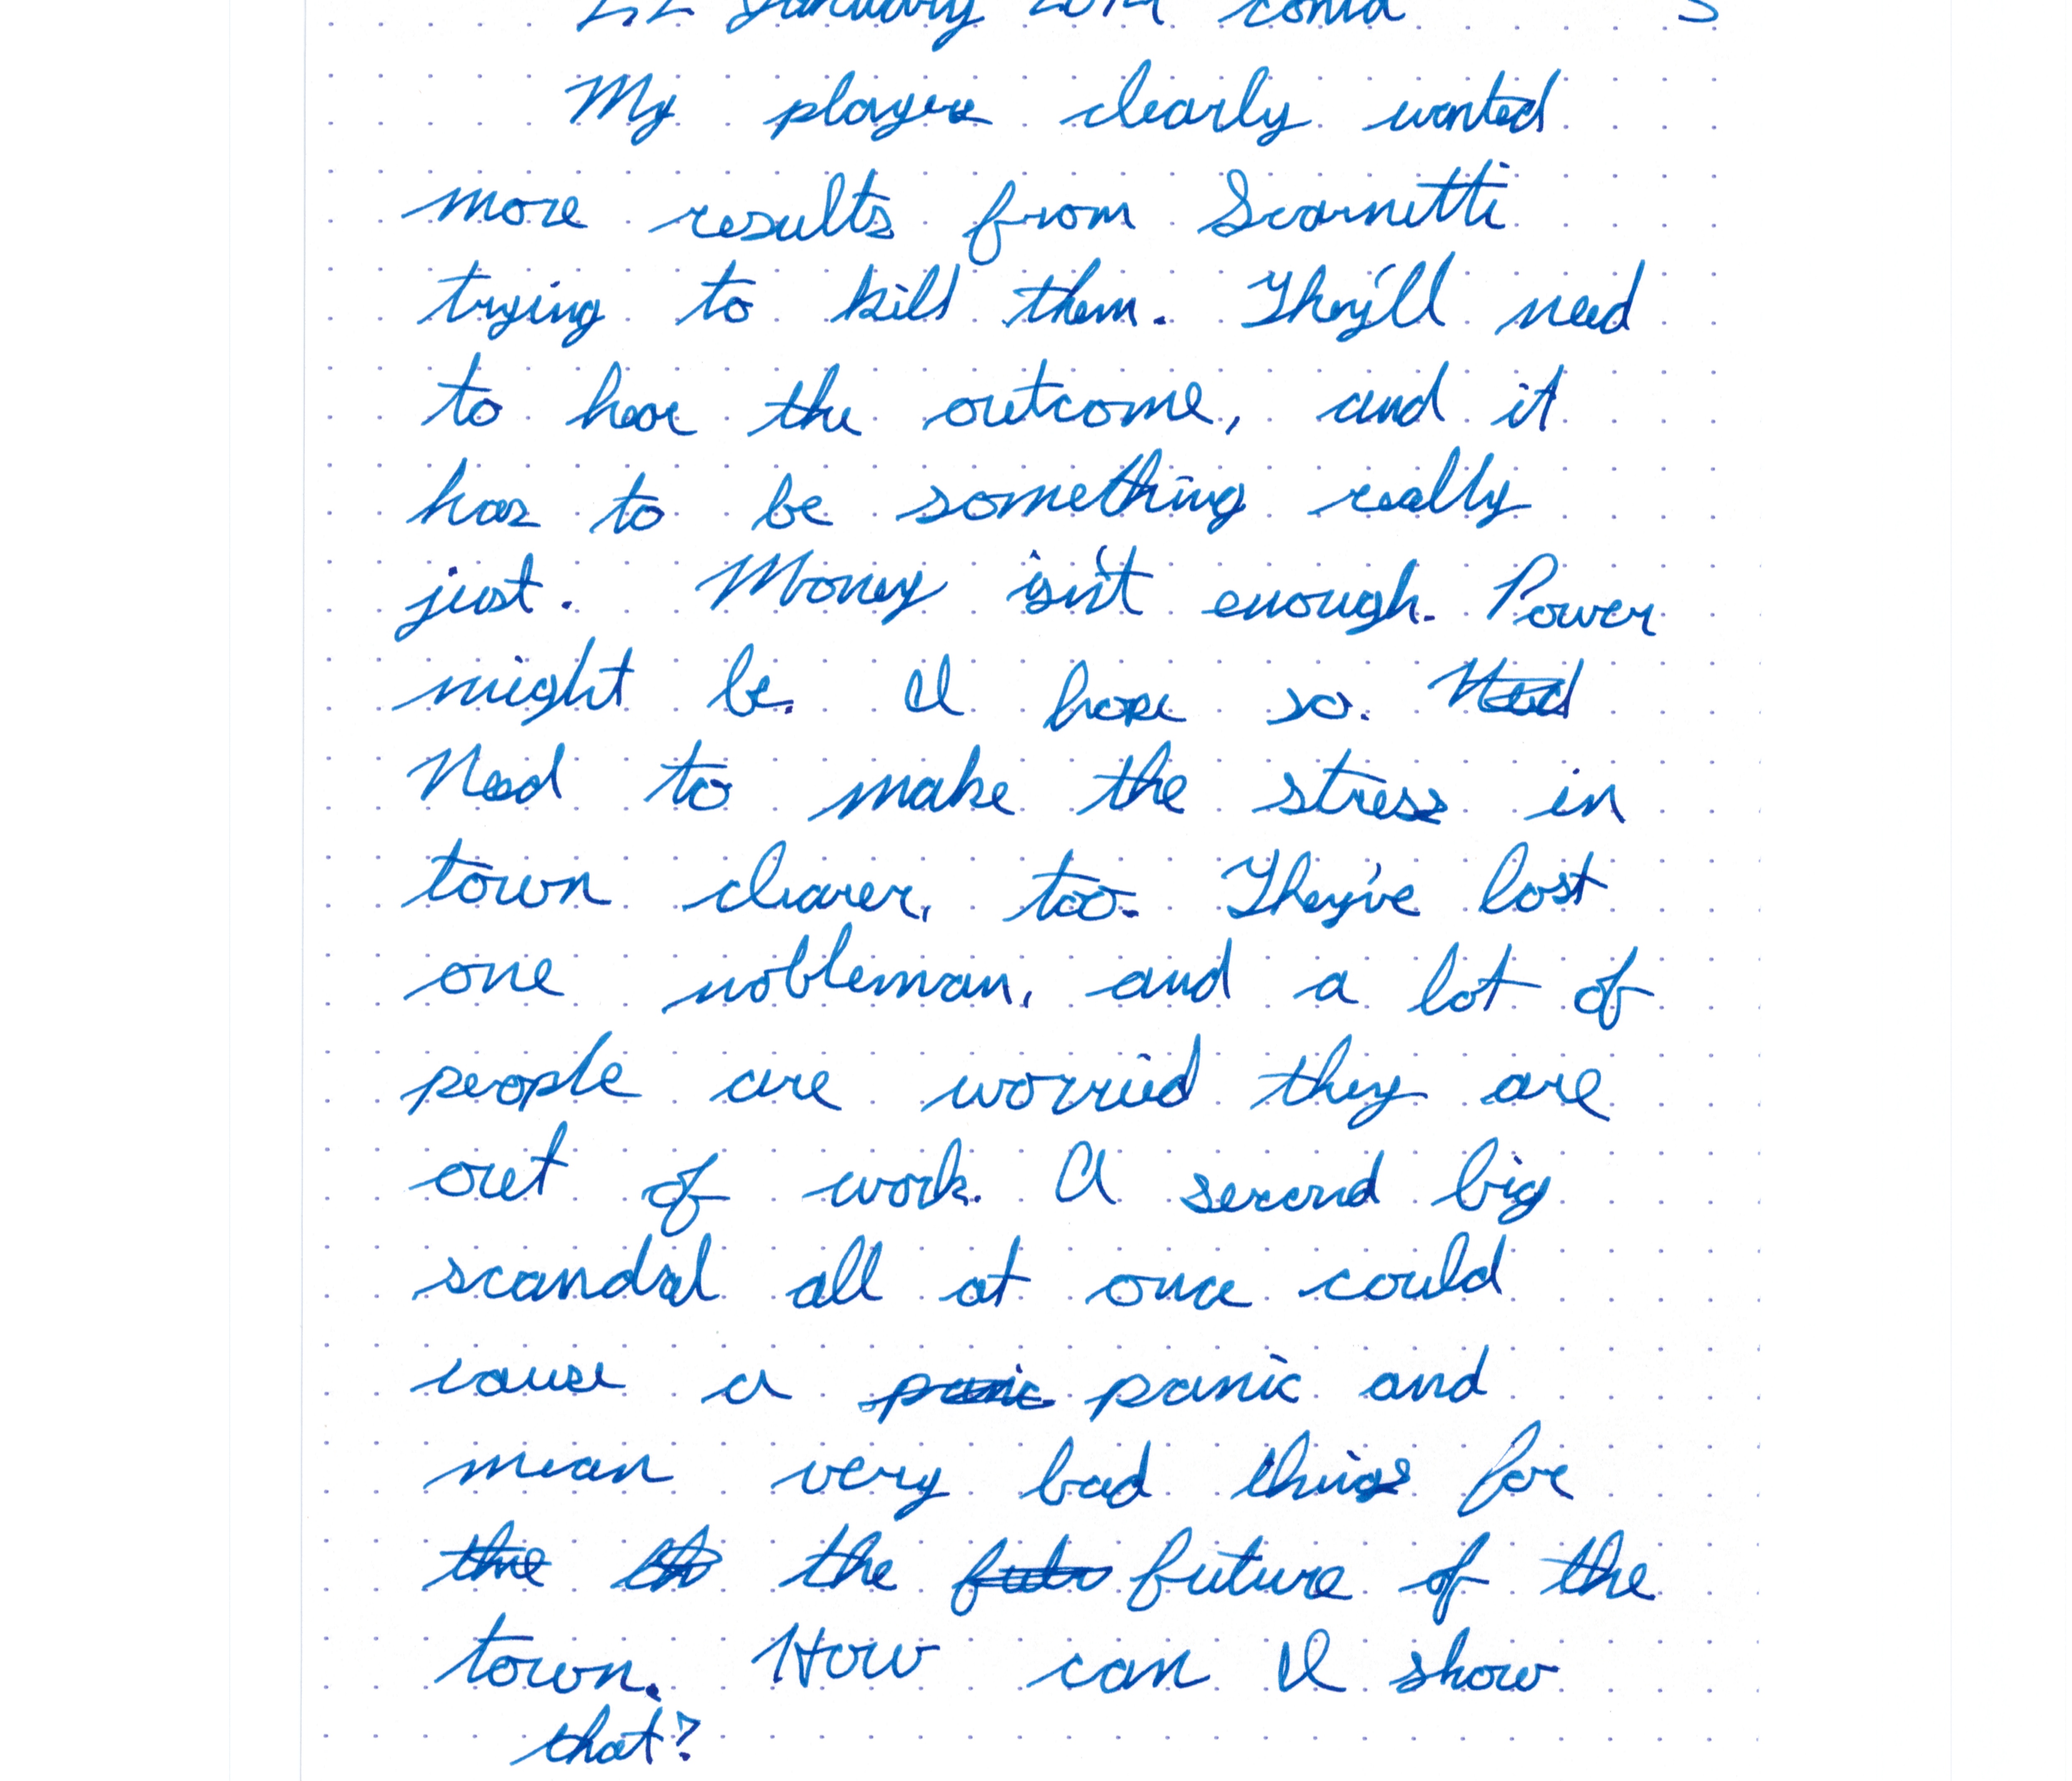 January
My players clearly wanted
more results from Scarnetti
trying to kill them. They'll need
to hear the outcome, and it
has to be something really
just. Money isn't enough. Power
might be. I hope so. Need
Need to make the stress in
town clearer, too. They've lost
one nobleman, and a lot of
people are worried they are
out of work. A second big
scandal all at once could
cause a panic panic and
mean very bad things for
the the future of the
town. How can I show
that?